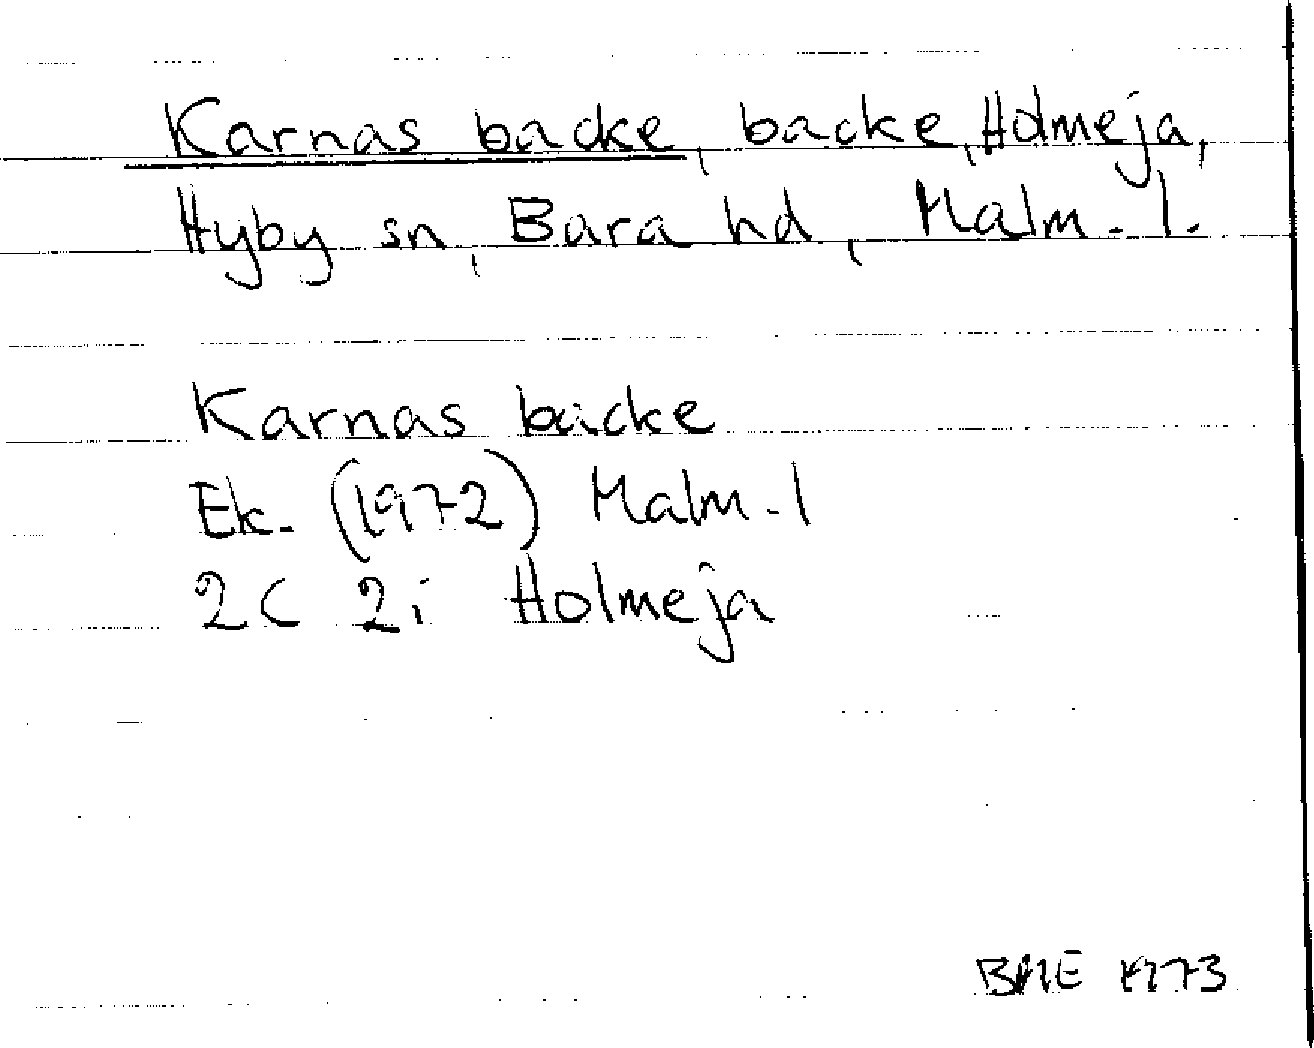 Karnas backe, backe, Holmeja,
Hyby sn, Bara hd, Malm. l.
Karnas backe
Ek. (1972) Malm. l
2C 2i Holmeja
1973